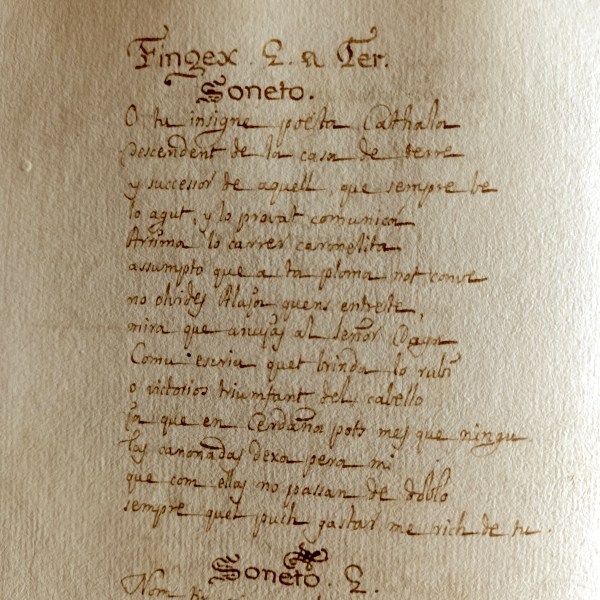 Fingex. L. a Ter.
Soneto.
O tu insigne poeta Cathala
descendent de la casa de terre
y successor de aquell, que sempre be
lo agut, y lo provat comunica
Arrima lo carrer carmelita
assumpto que a ta ploma not conve
no olvides Alaja quens entrete,
mira que anujas al señor
Comu escriu quet brinda lo rubi
o victorios triumfant del cabello
ja que en Cerdaña pots mes que ningu
las canonadas dexa pera mi
que com ellas no passan de doblo
sempre quet puch gastar me rich de tu.
Soneto. L.